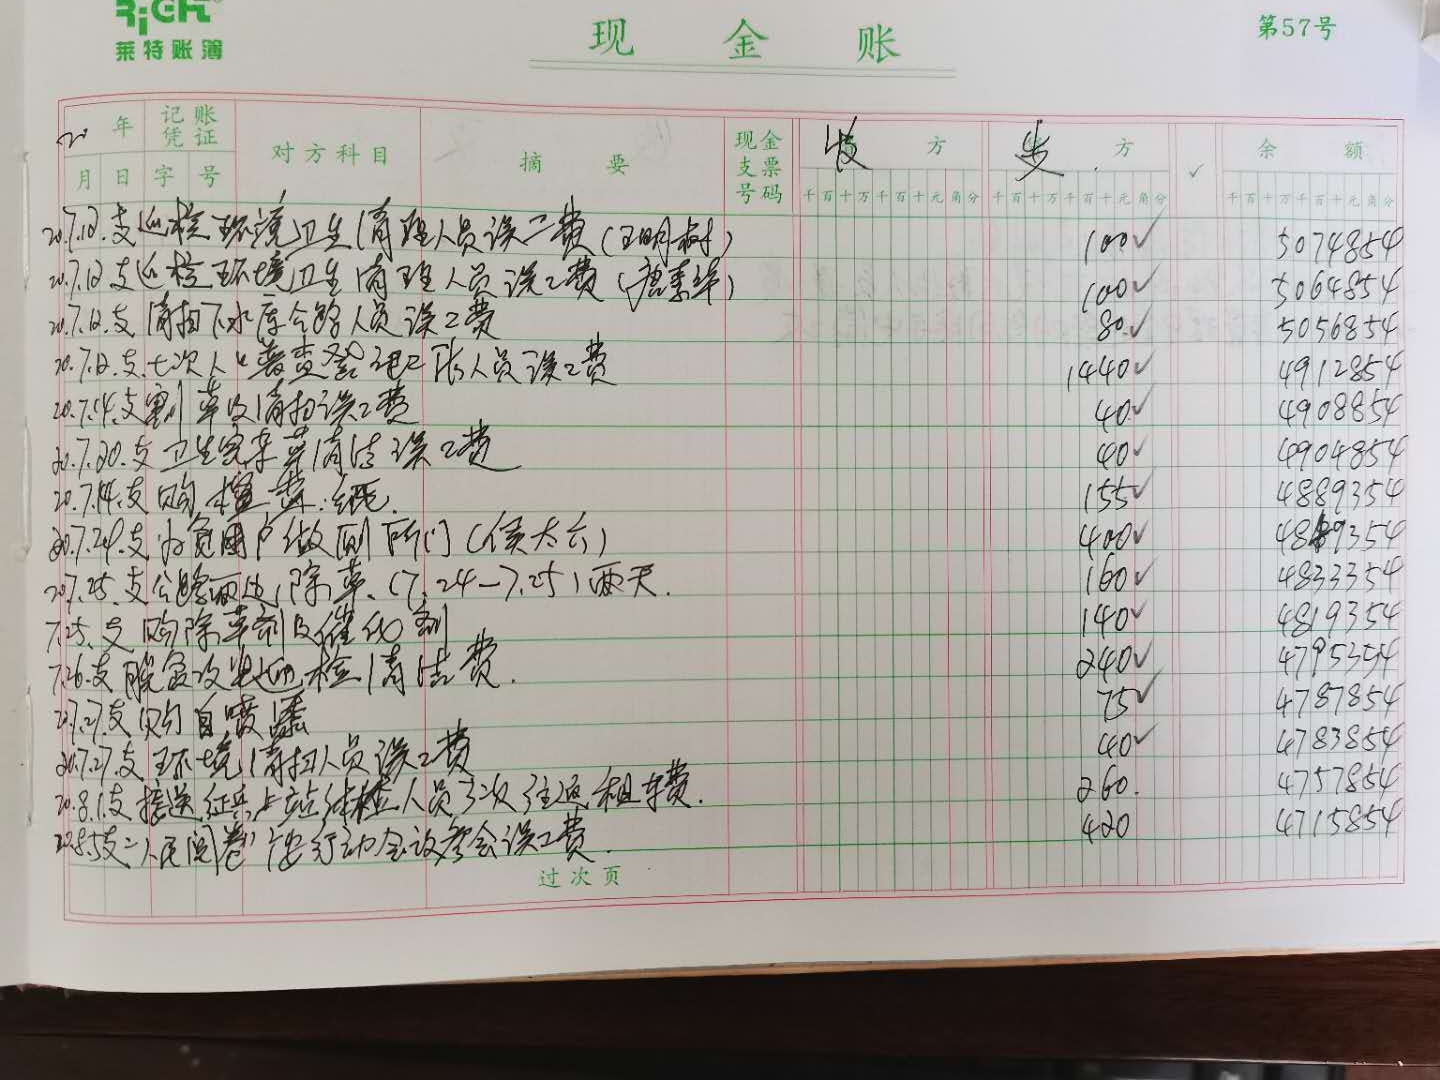 RiGHT
莱特账簿
现 金 账
第57号
20 年 记账凭证 对方科目 摘 要 现金支票号码 收 方 支 方 ✓ 余 额
月 日 字 号 千百十万千百十元角分 千百十万千百十元角分 千百十万千百十元角分
20.7.12.支巡检环境卫生清理人员误工费(王明树) 100✓ 5074854
20.7.12支巡检环境卫生清理人员误工费(唐素华) 100✓ 5064854
20.7.12.支清扫下水库公路人员误工费 80✓ 5056854
20.7.12.支七次人口普查登记 人员误工费 1440✓ 4912854
20.7.14.支割草及清扫误工费 40✓ 4908854
20.7.20.支卫生室杂草清洁误工费 40✓ 4904854
20.7.14.支购 纸. 155✓ 4889354
20.7.24.支为贫困户做厕所门(侯太六) 400✓ 4849354
20.7.25.支公路两边除草.(7.24—7.25)两天. 160✓ 4833354
7.25.支购除草剂及催化剂 140✓ 4819354
7.26.支脱贫攻坚迎检清洁费. 240✓ 4795354
20.7.27.支购自喷漆 75✓ 4787854
20.7.27.支环境清扫人员误工费 40✓ 4783854
20.8.1.支接送征兵上站体检人员三次往返租车费. 260. 4757854
20.8.5支 人民 行动会议参会误工费. 420 4715854
过次页